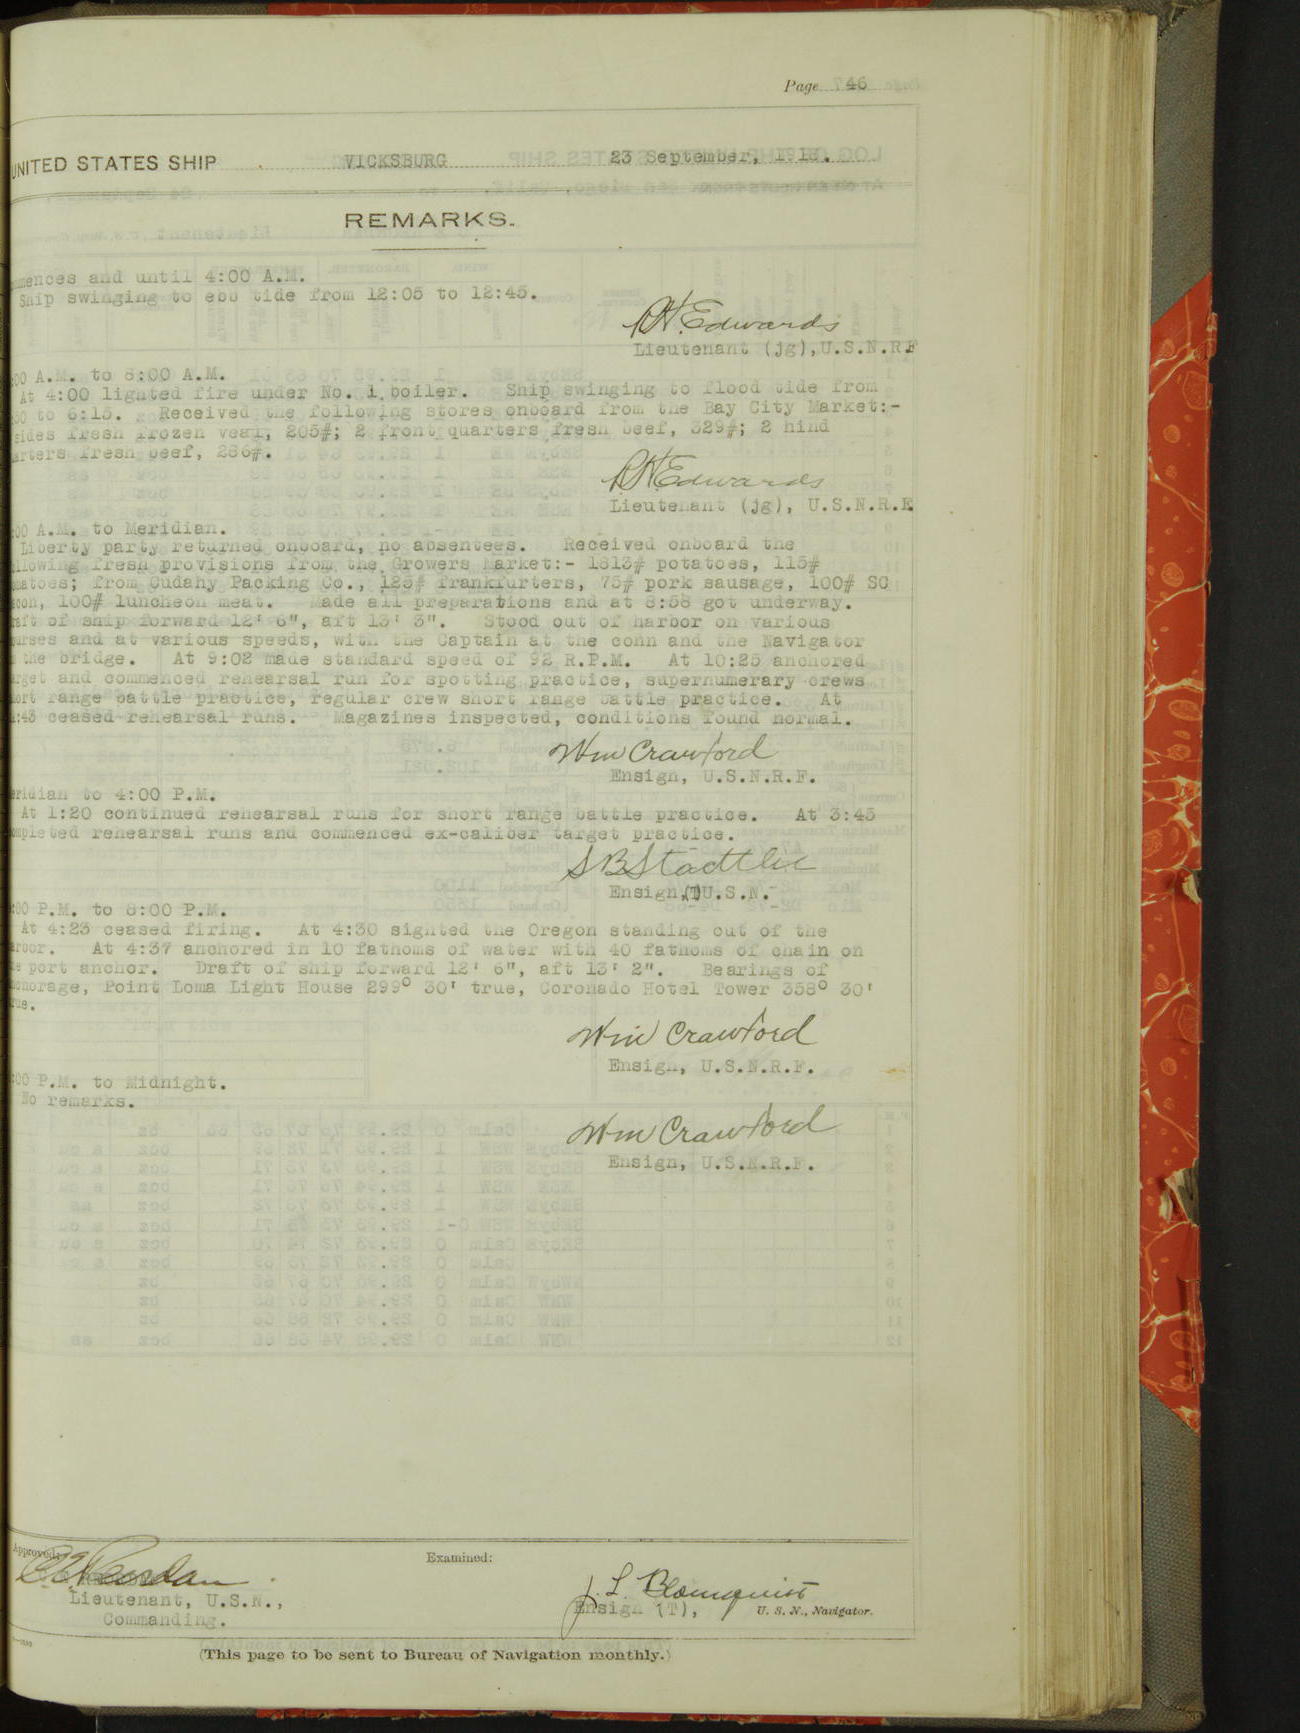 Page 746
UNITED STATES SHIP VICKSBURG 23 September, 1918.
REMARKS.
mences and until 4:00 A.M.
Ship swinging to ebb tide from 12:05 to 12:45.
Edwards
Lieutenant (jg), U.S.N.R.F
:00 A.M. to 8:00 A.M.
At 4:00 lighted fire under No. 1 boiler. Ship swinging to flood tide from
to 6:15. Received the following stores onboard from the Bay City Market:-
sides fresh frozen veal, 205#; 2 front quarters fresh beef, 329#; 2 hind
arters fresh beef, 286#.
Edwards
Lieutenant (jg), U.S.N.R.F
:00 A.M. to Meridian.
Liberty party returned onboard, no absentees. Received onboard the
llowing fresh provisions from the Growers Market:- 1813# potatoes, 115#
matoes; from Cudahy Packing Co., 125# frankfurters, 75# pork sausage, 100# SC
acon, 100# luncheon meat. Made all preparations and at 8:58 got underway.
raft of ship forward 12' 6", aft 13' 3". Stood out of harbor on various
urses and at various speeds, with the Captain at the conn and the Navigator
the bridge. At 9:02 made standard speed of 92 R.P.M. At 10:25 anchored
arget and commenced rehearsal run for spotting practice, supernumerary crews
hort range battle practice, regular crew short range battle practice. At
:43 ceased rehearsal runs. Magazines inspected, conditions found normal.
Wm Crawford
Ensign, U.S.N.R.F.
eridian to 4:00 P.M.
At 1:20 continued rehearsal runs for short range battle practice. At 3:45
ompleted rehearsal runs and commenced ex-caliber target practice.
Ensign,(T)U.S.N.
:00 P.M. to 8:00 P.M.
At 4:23 ceased firing. At 4:30 sighted the Oregon standing out of the
arbor. At 4:37 anchored in 10 fathoms of water with 40 fathoms of chain on
he port anchor. Draft of ship forward 12' 6", aft 13' 2". Bearings of
nchorage, Point Loma Light House 299° 30' true, Coronado Hotel Tower 358° 30'
rue.
Wm Crawford
Ensign, U.S.N.R.F.
:00 P.M. to Midnight.
No remarks.
Wm Crawford
Ensign, U.S.N.R.F.
Approved:
Examined:
Lieutenant, U.S.N.,
Commanding.
J. L. Blomquist
Ensign (T), U. S. N., Navigator.
(This page to be sent to Bureau of Navigation monthly.)